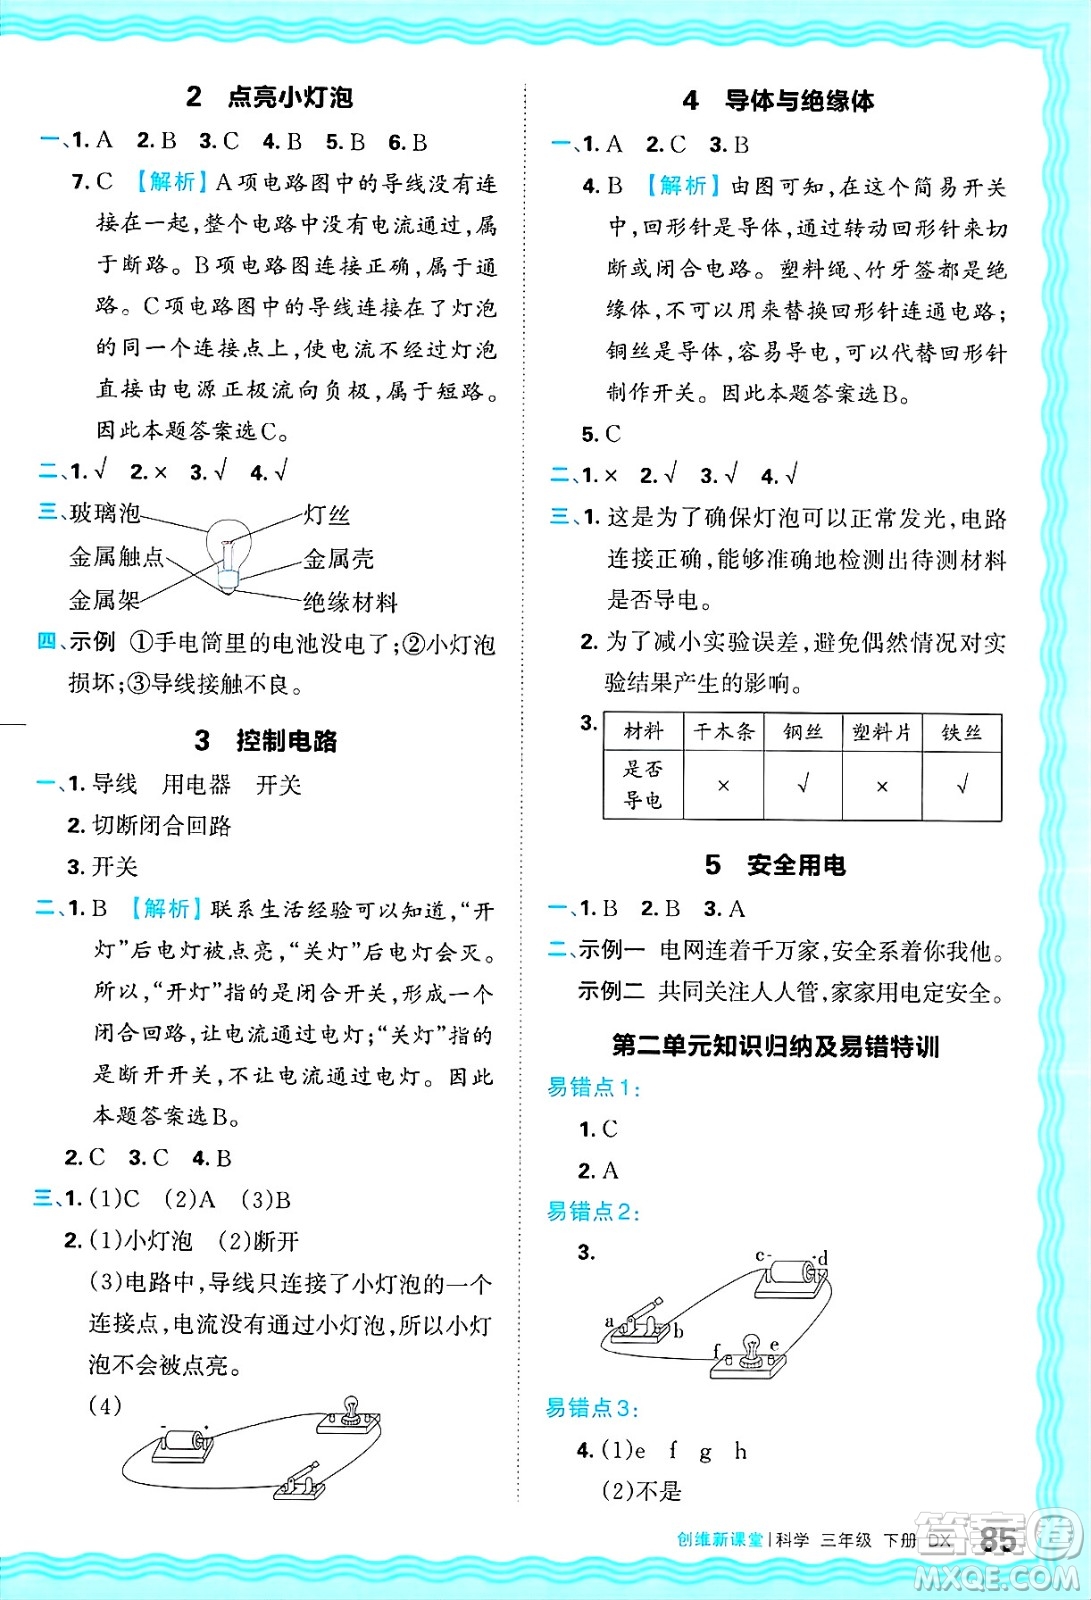 2 点亮小灯泡
一、1. A 2. B 3. C 4. B 5. B 6. B
7. C 【解析】A项电路图中的导线没有连
接在一起,整个电路中没有电流通过,属
于断路。B项电路图连接正确,属于通
路。C项电路图中的导线连接在了灯泡
的同一个连接点上,使电流不经过灯泡
直接由电源正极流向负极,属于短路。
因此本题答案选C。
二、1. √ 2. × 3. √ 4. √
三、玻璃泡 灯丝
金属触点 金属壳
金属架 绝缘材料
四、示例 ①手电筒里的电池没电了;②小灯泡
损坏;③导线接触不良。
3 控制电路
一、1. 导线 用电器 开关
2. 切断闭合回路
3. 开关
二、1. B 【解析】联系生活经验可以知道,“开
灯”后电灯被点亮,“关灯”后电灯会灭。
所以,“开灯”指的是闭合开关,形成一个
闭合回路,让电流通过电灯;“关灯”指的
是断开开关,不让电流通过电灯。因此
本题答案选B。
2. C 3. C 4. B
三、1. (1)C (2)A (3)B
2. (1)小灯泡 (2)断开
(3)电路中,导线只连接了小灯泡的一个
连接点,电流没有通过小灯泡,所以小灯
泡不会被点亮。
(4)
- +
4 导体与绝缘体
一、1. C 2. B 3. B
4. B 【解析】由图可知,在这个简易开关
中,回形针是导体,通过转动回形针来切
断或闭合电路。塑料绳、竹牙签都是绝
缘体,不可以用来替换回形针连通电路;
铜丝是导体,容易导电,可以代替回形针
制作开关。因此本题答案选B。
5. C
二、1. × 2. √ 3. √ 4. √
三、1. 这是为了确保灯泡可以正常发光,电路
连接正确,能够准确地检测出待测材料
是否导电。
2. 为了减小实验误差,避免偶然情况对实
验结果产生的影响。
3. 材料 干木条 钢丝 塑料片 铁丝
是否
导电 × √ × √
5 安全用电
一、1. B 2. B 3. A
二、示例一 电网连着千万家,安全系着你我他。
示例二 共同关注人人管,家家用电定安全。
第二单元知识归纳及易错特训
易错点1:
1. C
2. A
易错点2:
3.
c d
a b
f e
易错点3:
4. (1)e f g h
(2)不是
创维新课堂 | 科学 三年级 下册 DX 85
答案圈
MXQE.COM